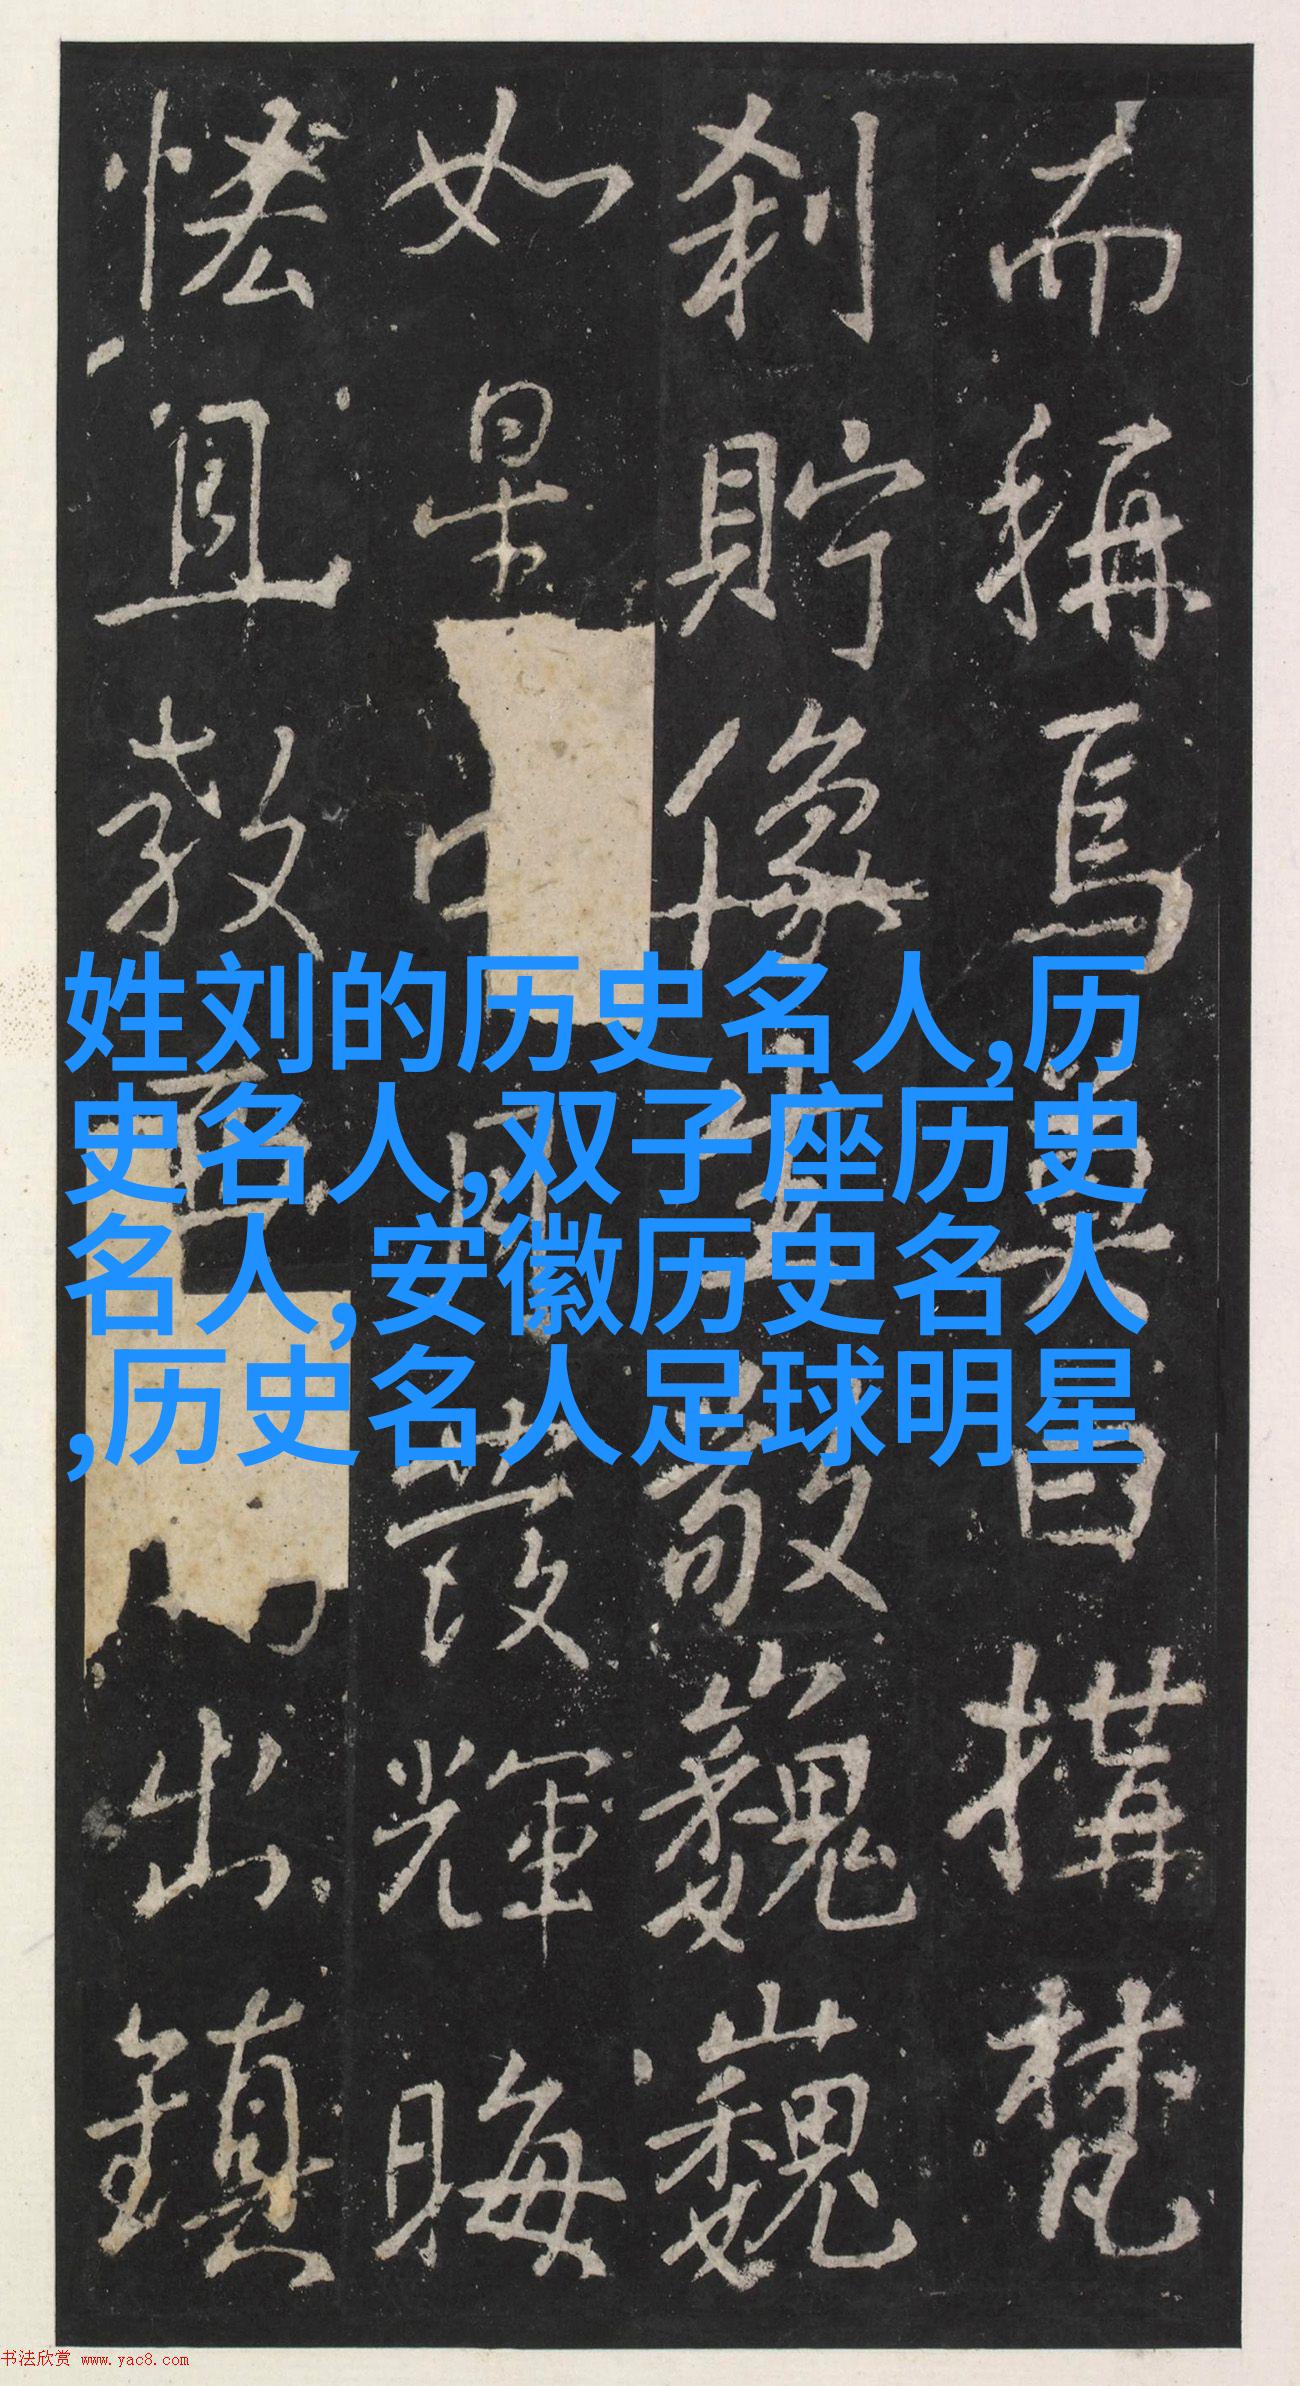 而稱焉曰搆梵
刹貯像敞巍巍
如杲月發輝晦
宜教出鎮
姓刘的历史名人,历
史名人,双子座历史
名人,安徽历史名人
,历史名人足球明星
书法欣赏 www.yac8.com